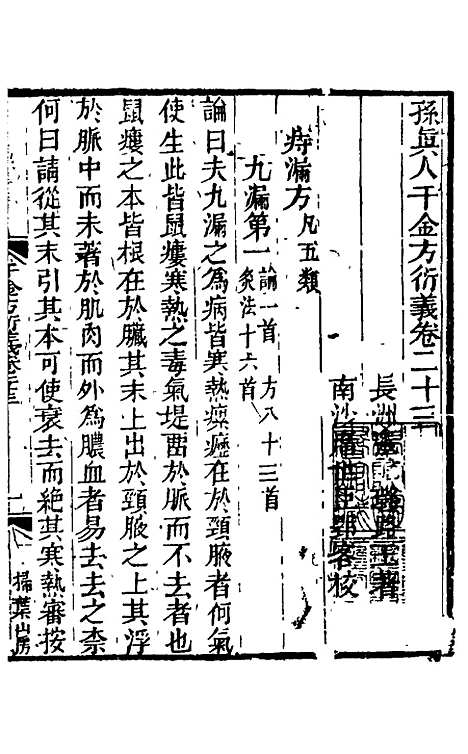 孫眞人千金方衍義卷二十三
長洲張璐路玉著
南沙席世臣郢客校
痔漏方凡五類
九漏第一論一首 方八十三首 灸法十六首
論曰夫九漏之爲病皆寒熱瘰癧在於頸腋者何氣
使生此皆鼠瘻寒熱之毒氣堤畱於脈而不去者也
鼠瘻之本皆根在於臟其末上出於頸腋之上其浮
於脈中而未著於肌肉而外爲膿血者易去去之柰
何曰請從其末引其本可使衰去而絕其寒熱審按
千金方衍義卷二十三
一
掃葉山房